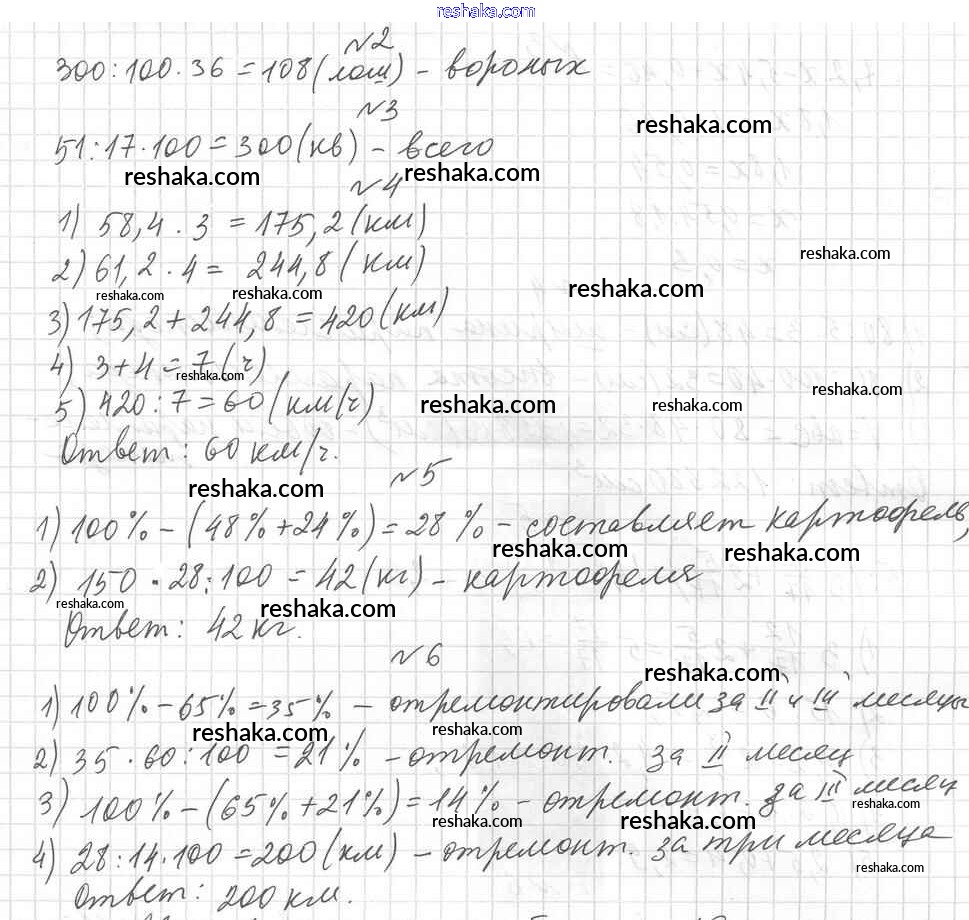 reshaka.com
№2
300:100·36=108(лош) - вороных
№3
reshaka.com
51:17·100=300(кв) - всего
reshaka.com
reshaka.com
№4
1) 58,4·3=175,2(км)
reshaka.com
2) 61,2·4= 244,8(км)
reshaka.com
reshaka.com
reshaka.com
3) 175,2+244,8=420(км)
4) 3+4=7(ч)
reshaka.com
reshaka.com
5) 420:7=60(км/ч)
reshaka.com
reshaka.com
Ответ: 60 км/ч.
№5
reshaka.com
1) 100%-(48%+24%)=28% - составляет картофель,
reshaka.com
reshaka.com
2) 150·28:100=42(кг) - картофеля
reshaka.com
reshaka.com
Ответ: 42 кг.
№6
reshaka.com
1) 100%-65%=35% - отремонтировали за II и III месяцы
reshaka.com
reshaka.com
2) 35·60:100=21% - отремонт. за II месяц
3) 100%-(65%+21%)=14% - отремонт. за III месяц
reshaka.com
reshaka.com
reshaka.com
4) 28:14·100=200(км) - отремонт. за три месяца
reshaka.com
Ответ: 200 км.